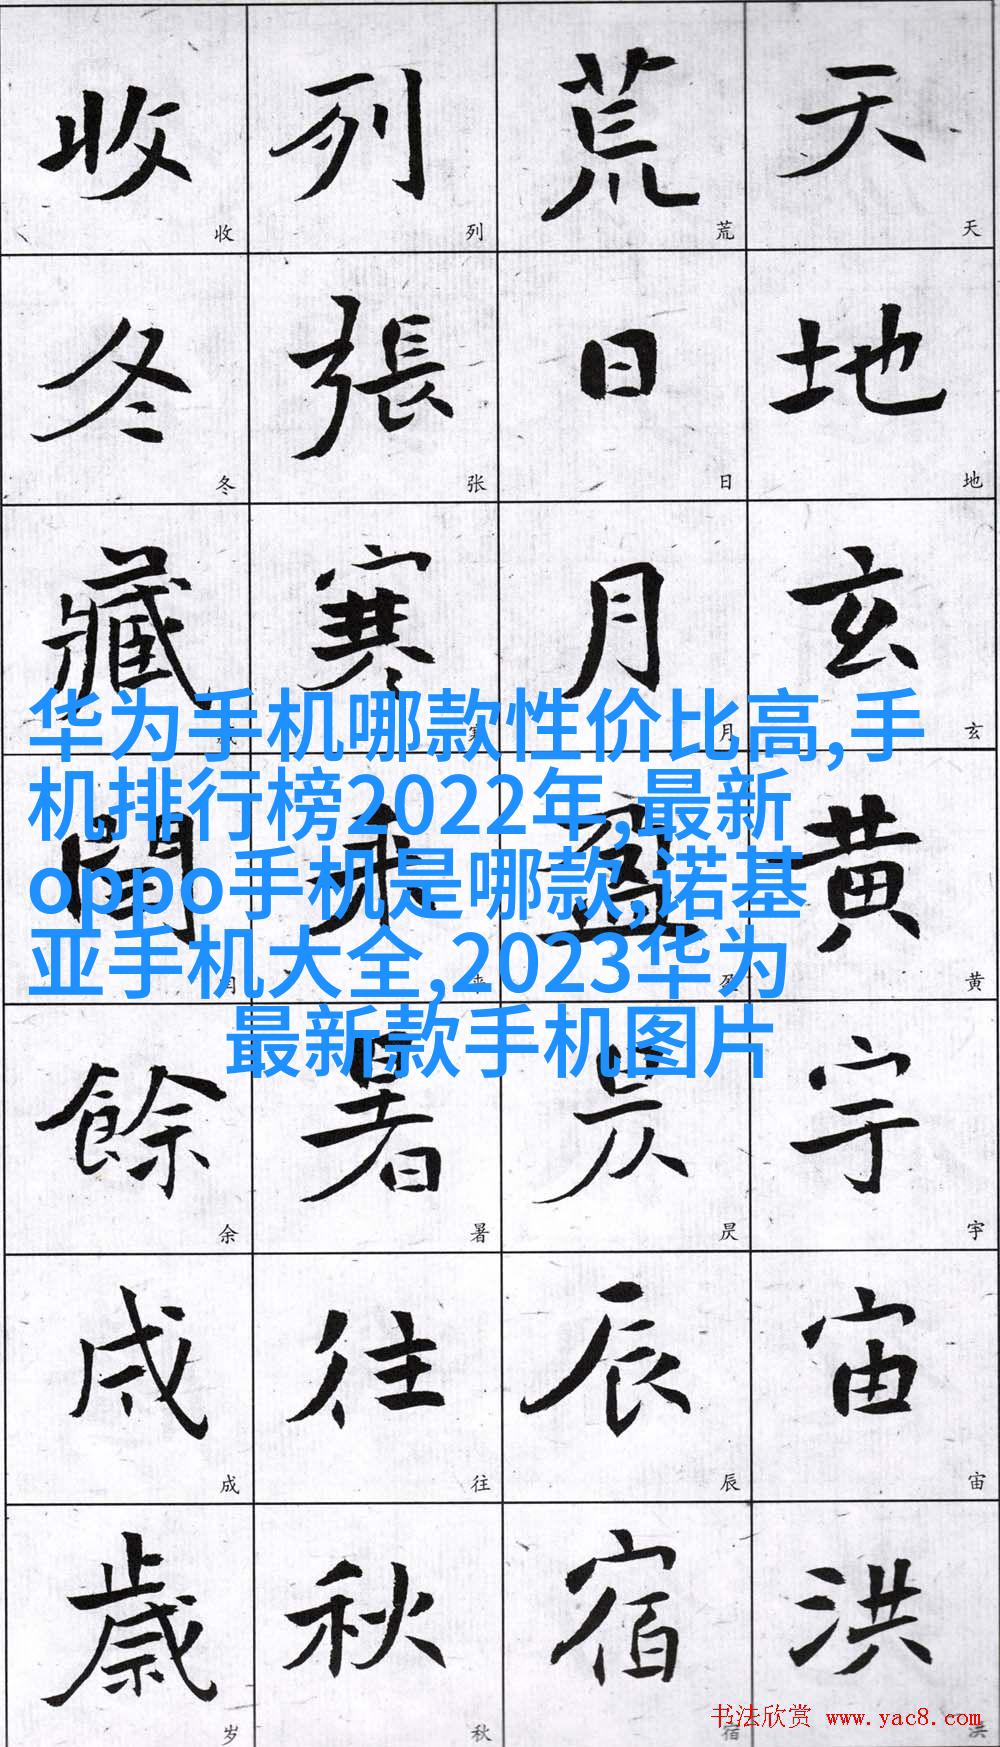 天地玄黄宇宙洪
天地玄黄宇宙洪
荒日月盈昃辰宿
荒日月盈昃辰宿
列張寒来暑往秋
列张寒来暑往秋
收冬藏閏餘成歲
收冬藏闰余成岁
华为手机哪款性价比高,手
机排行榜2022年,最新
oppo手机是哪款,诺基
亚手机大全,2023华为
最新款手机图片
书法欣赏 www.yac8.com